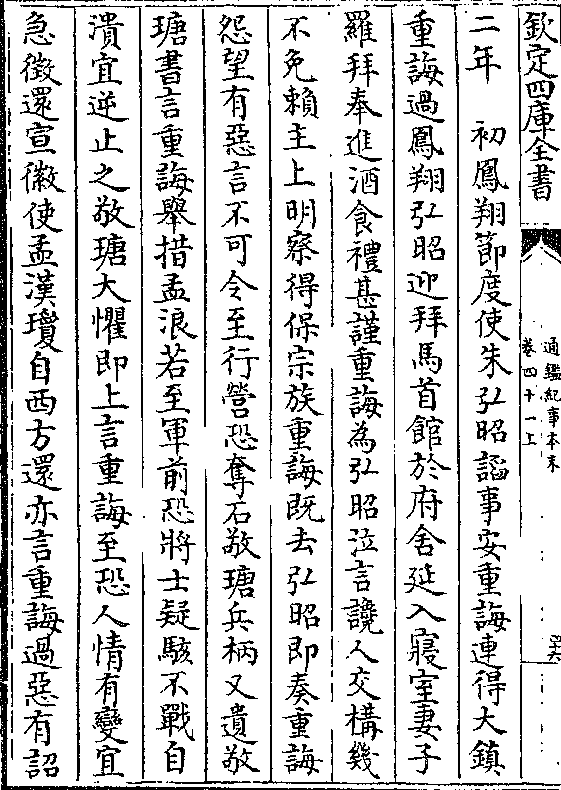 欽定四庫全書
通鑑紀事本末
卷四十一上
二年　初鳳翔節度使朱弘昭謟事安重誨連得大鎮
重誨過鳳翔弘昭迎拜馬首館於府舍延入寢室妻子
羅拜奉進酒食禮甚謹重誨為弘昭泣言讒人交構幾
不免賴主上明察得保宗族重誨既去弘昭即奏重誨
怨望有惡言不可令至行營恐奪石敬瑭兵柄又遺敬
瑭書言重誨舉措孟浪若至軍前恐將士疑駭不戰自
潰宜逆止之敬瑭大懼即上言重誨至恐人情有變宜
急徵還宣徽使孟漢瓊自西方還亦言重誨過惡有詔